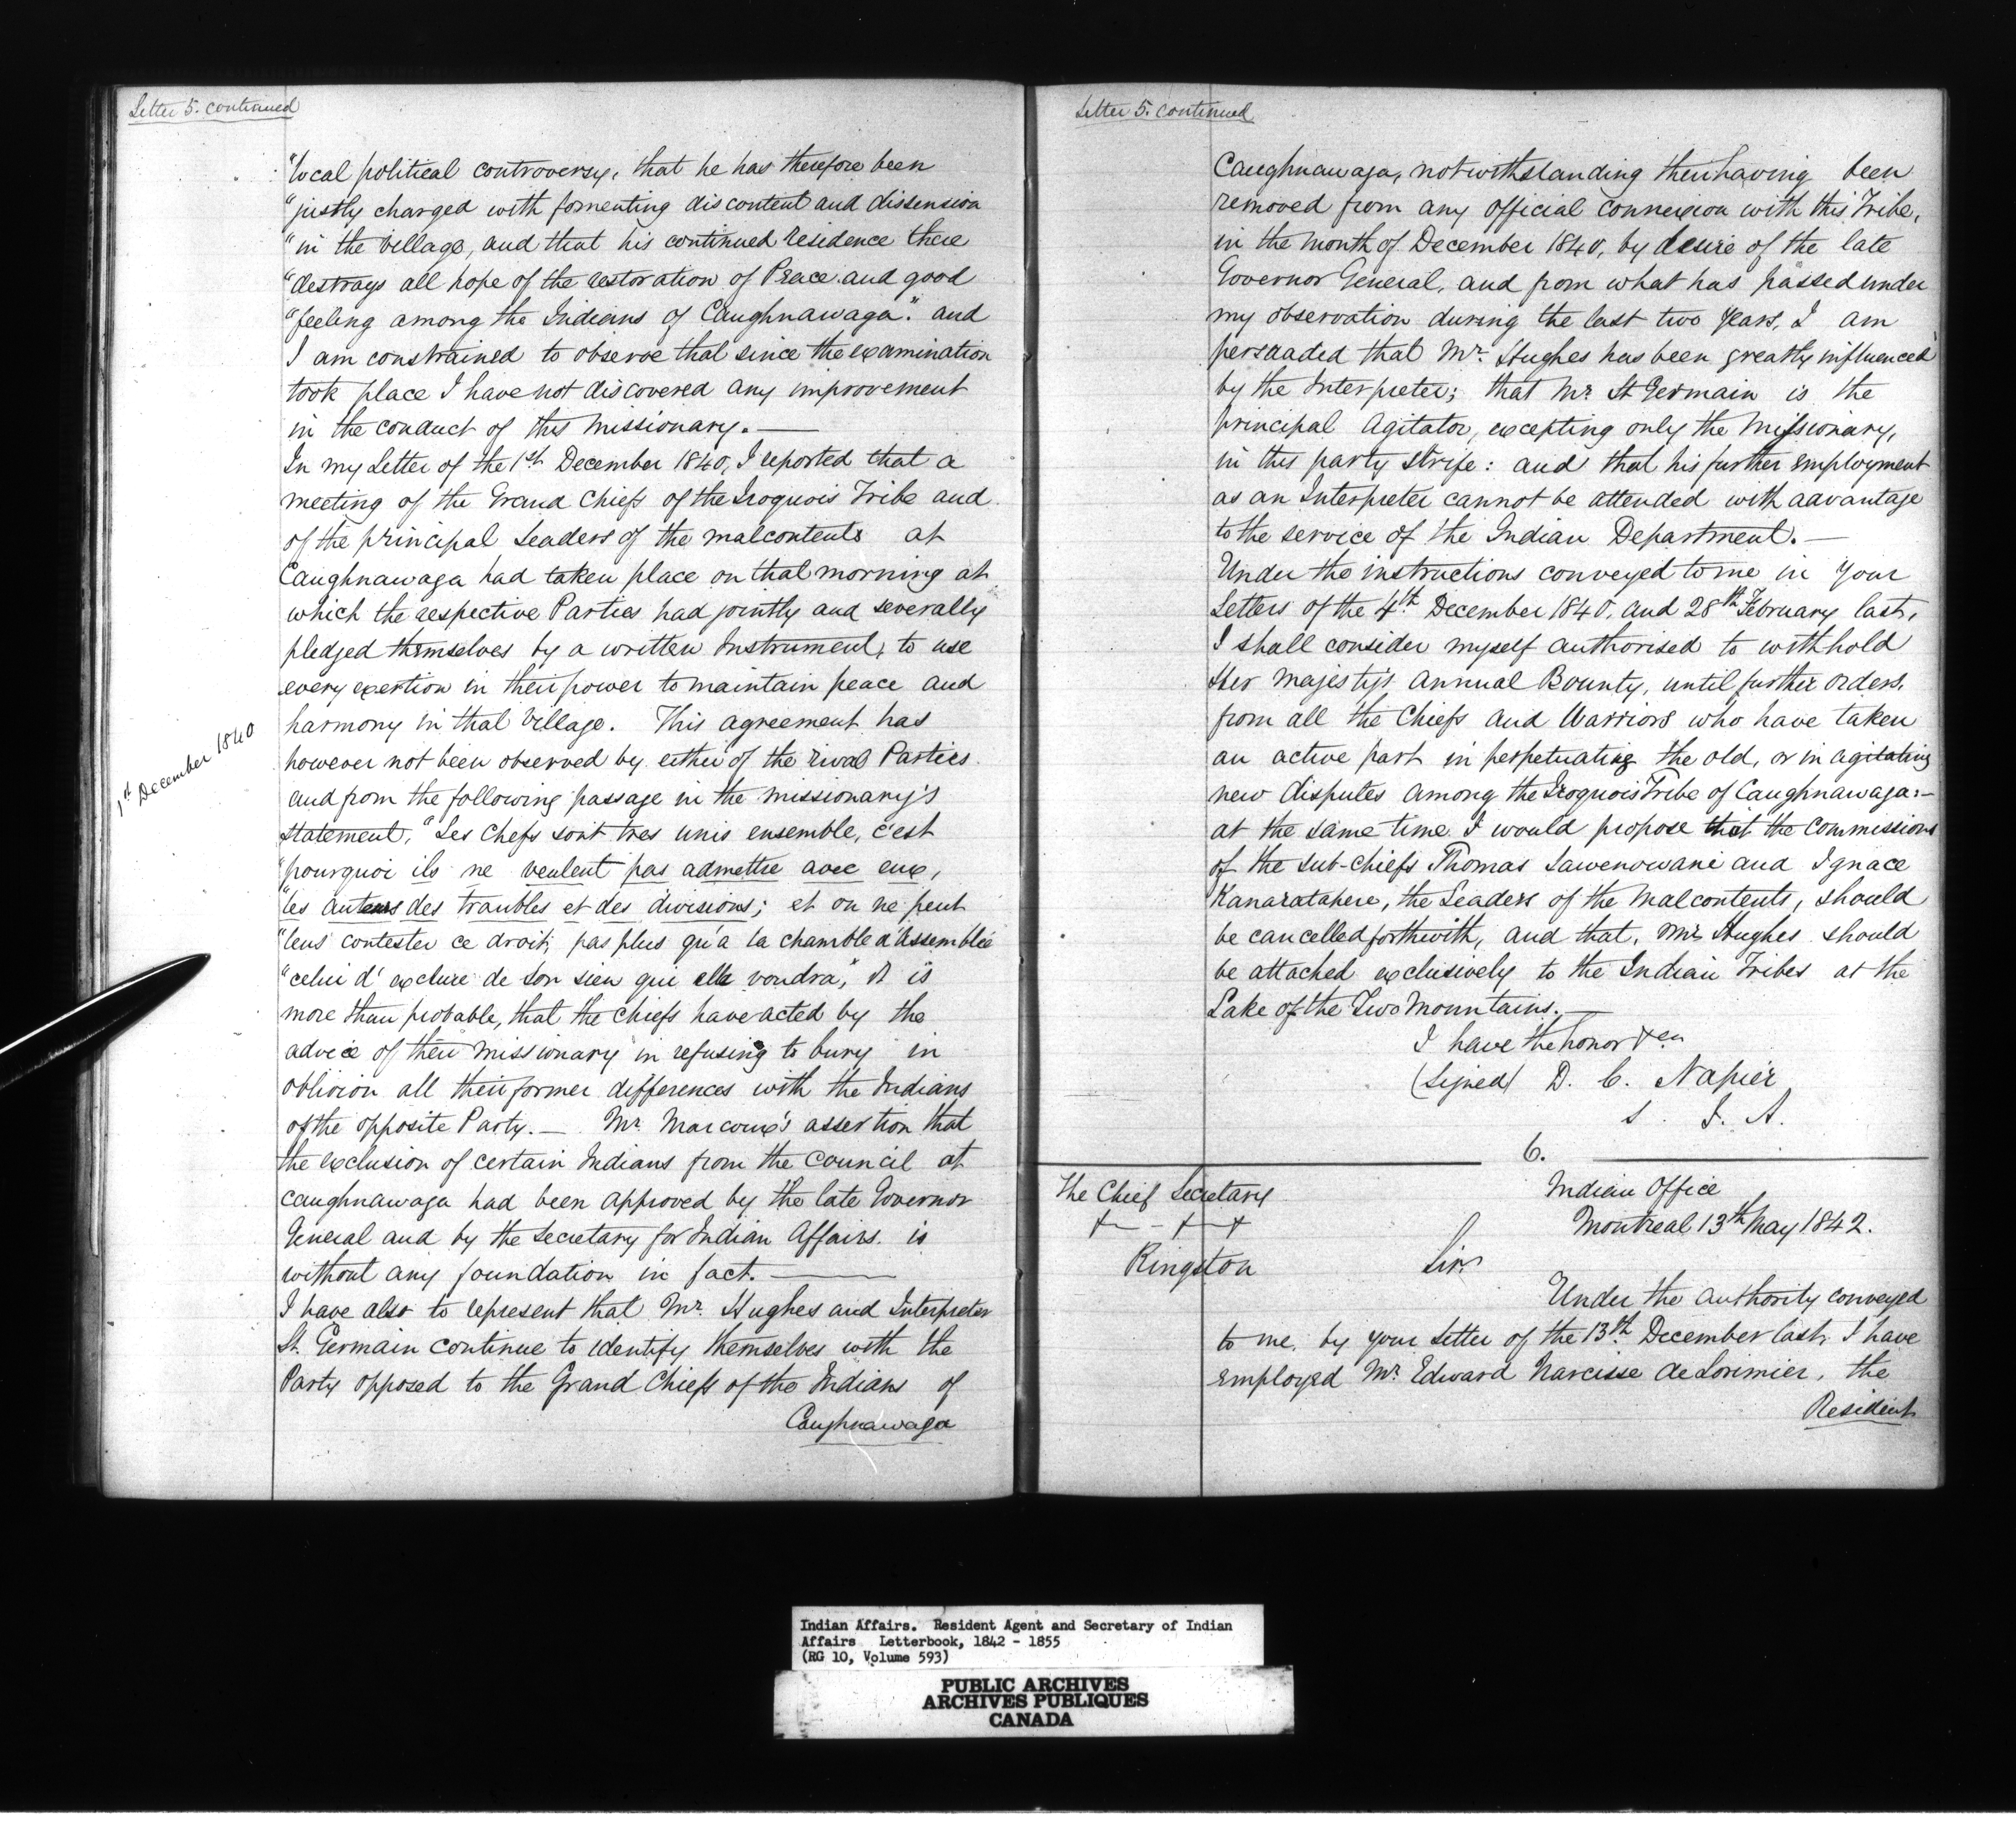 Letter 5. continued
"local political controversy, that he has therefore been
"justly charged with fomenting discontent and dissension
"in the Village, and that his continued residence there
"destroys all hope of the restoration of Peace and good
"feeling among the Indians of Caughnawaga." and
I am constrained to observe that since the examination
took place I have not discovered any improvement
in the conduct of this Missionary.—
In my Letter of the 1st December 1840, I reported that a
meeting of the Grand Chiefs of the Iroquois Tribe and
of the principal Leaders of the malcontents at
Caughnawaga had taken place on that morning at
which the respective Parties had jointly and severally
pledged themselves by a written Instrument, to use
every exertion in their power to maintain peace and
harmony in that Village. This agreement has
1st December 1840
however not been observed by either of the rival Parties
and from the following passage in the missionary's
statement, "Les Chefs sont tres unis ensemble, c'est
"pourquoi ils ne veulent pas admettre avec eux,
"les auteurs des troubles et des divisions; et on ne peut
"leus contester ce droit; pas plus qu'a la chambre d'Assemblée
"celui d'exclure de son sien qui elle voudra," it is
more than probable, that the Chiefs have acted by the
advice of their missionary in refusing to bury in
oblivion all their former differences with the Indians
of the opposite Party.— Mr. Marcoux's assertion that
the exclusion of certain Indians from the Council at
Caughnawaga had been approved by the late Governor
General and by the Secretary for Indian Affairs. is
without any foundation in fact.—
I have also to represent that Mr. Hughes and Interpreter
St. Germain continue to identify themselves with the
Party opposed to the Grand Chiefs of the Indians of
Caughnawaga
Letter 5. continued
Caughnawaga, notwithstanding their having been
removed from any official connexion with this Tribe,
in the month of December 1840, by desire of the late
Governor General, and from what has passed under
my observation during the last two years, I am
persuaded that Mr. Hughes has been greatly influenced
by the Interpreter; that Mr. St Germain is the
principal Agitator, excepting only the Missionary,
in this party strife: and that his further employment
as an Interpreter cannot be attended with advantage
to the service of the Indian Department.—
Under the instructions conveyed to me in Your
Letters of the 4th December 1840, and 28th February last,
I shall consider myself authorised to withhold
Her Majesty's Annual Bounty, until further orders,
from all the Chiefs and Warriors who have taken
an active part in perpetuating the old, or in agitating
new disputes among the Iroquois Tribe of Caughnawaga:—
at the same time I would propose that the Commissions
of the sub-chiefs Thomas Sawenowane and Ignace
Kanaratahere, the Leaders of the Malcontents, should
be cancelled forthwith, and that, Mr. Hughes should
be attached exclusively to the Indian Tribes at the
Lake of the Two Mountains.—
I have the honor &ca
(signed) D. C. Napier
S. I. A.
6.
The Chief Secretary
+ - + +
Kingston
Indian Office
Montreal 13th May 1842.
Sir.
Under the authority conveyed
to me, by your Letter of the 13th December last, I have
employed Mr. Edward Narcisse de Lorimier, the
Resident
Indian Affairs. Resident Agent and Secretary of Indian
Affairs Letterbook, 1842 - 1855
(RG 10, Volume 593)
PUBLIC ARCHIVES
ARCHIVES PUBLIQUES
CANADA